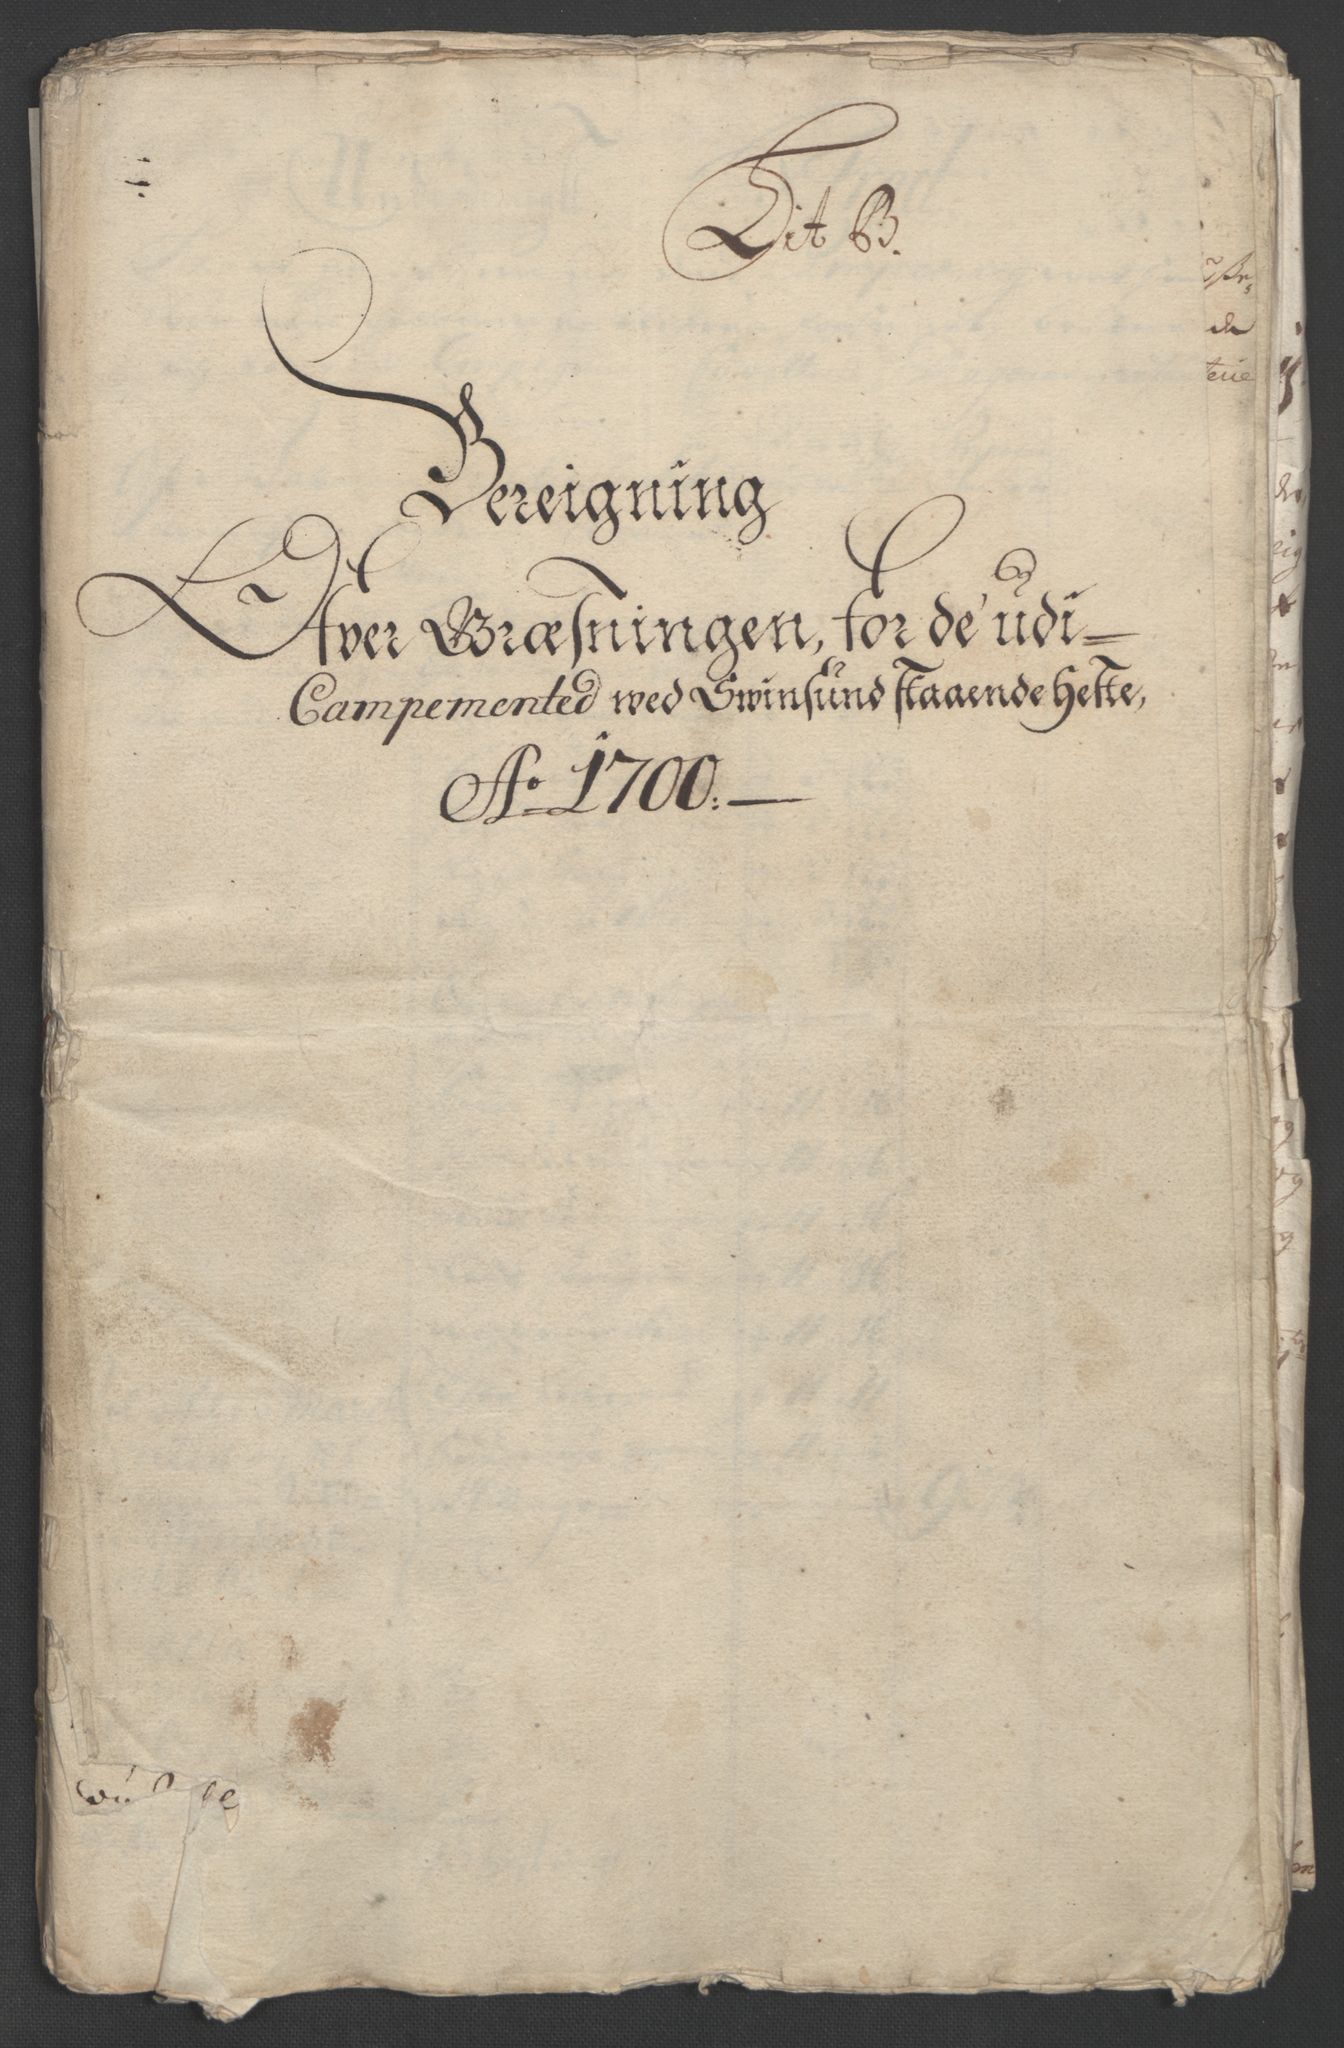 Lit B.
Bereigning
Ofver Græsningen, for de udi
Campemented wed Swinsund staaende Heste,
Ao 1700.
de
terie